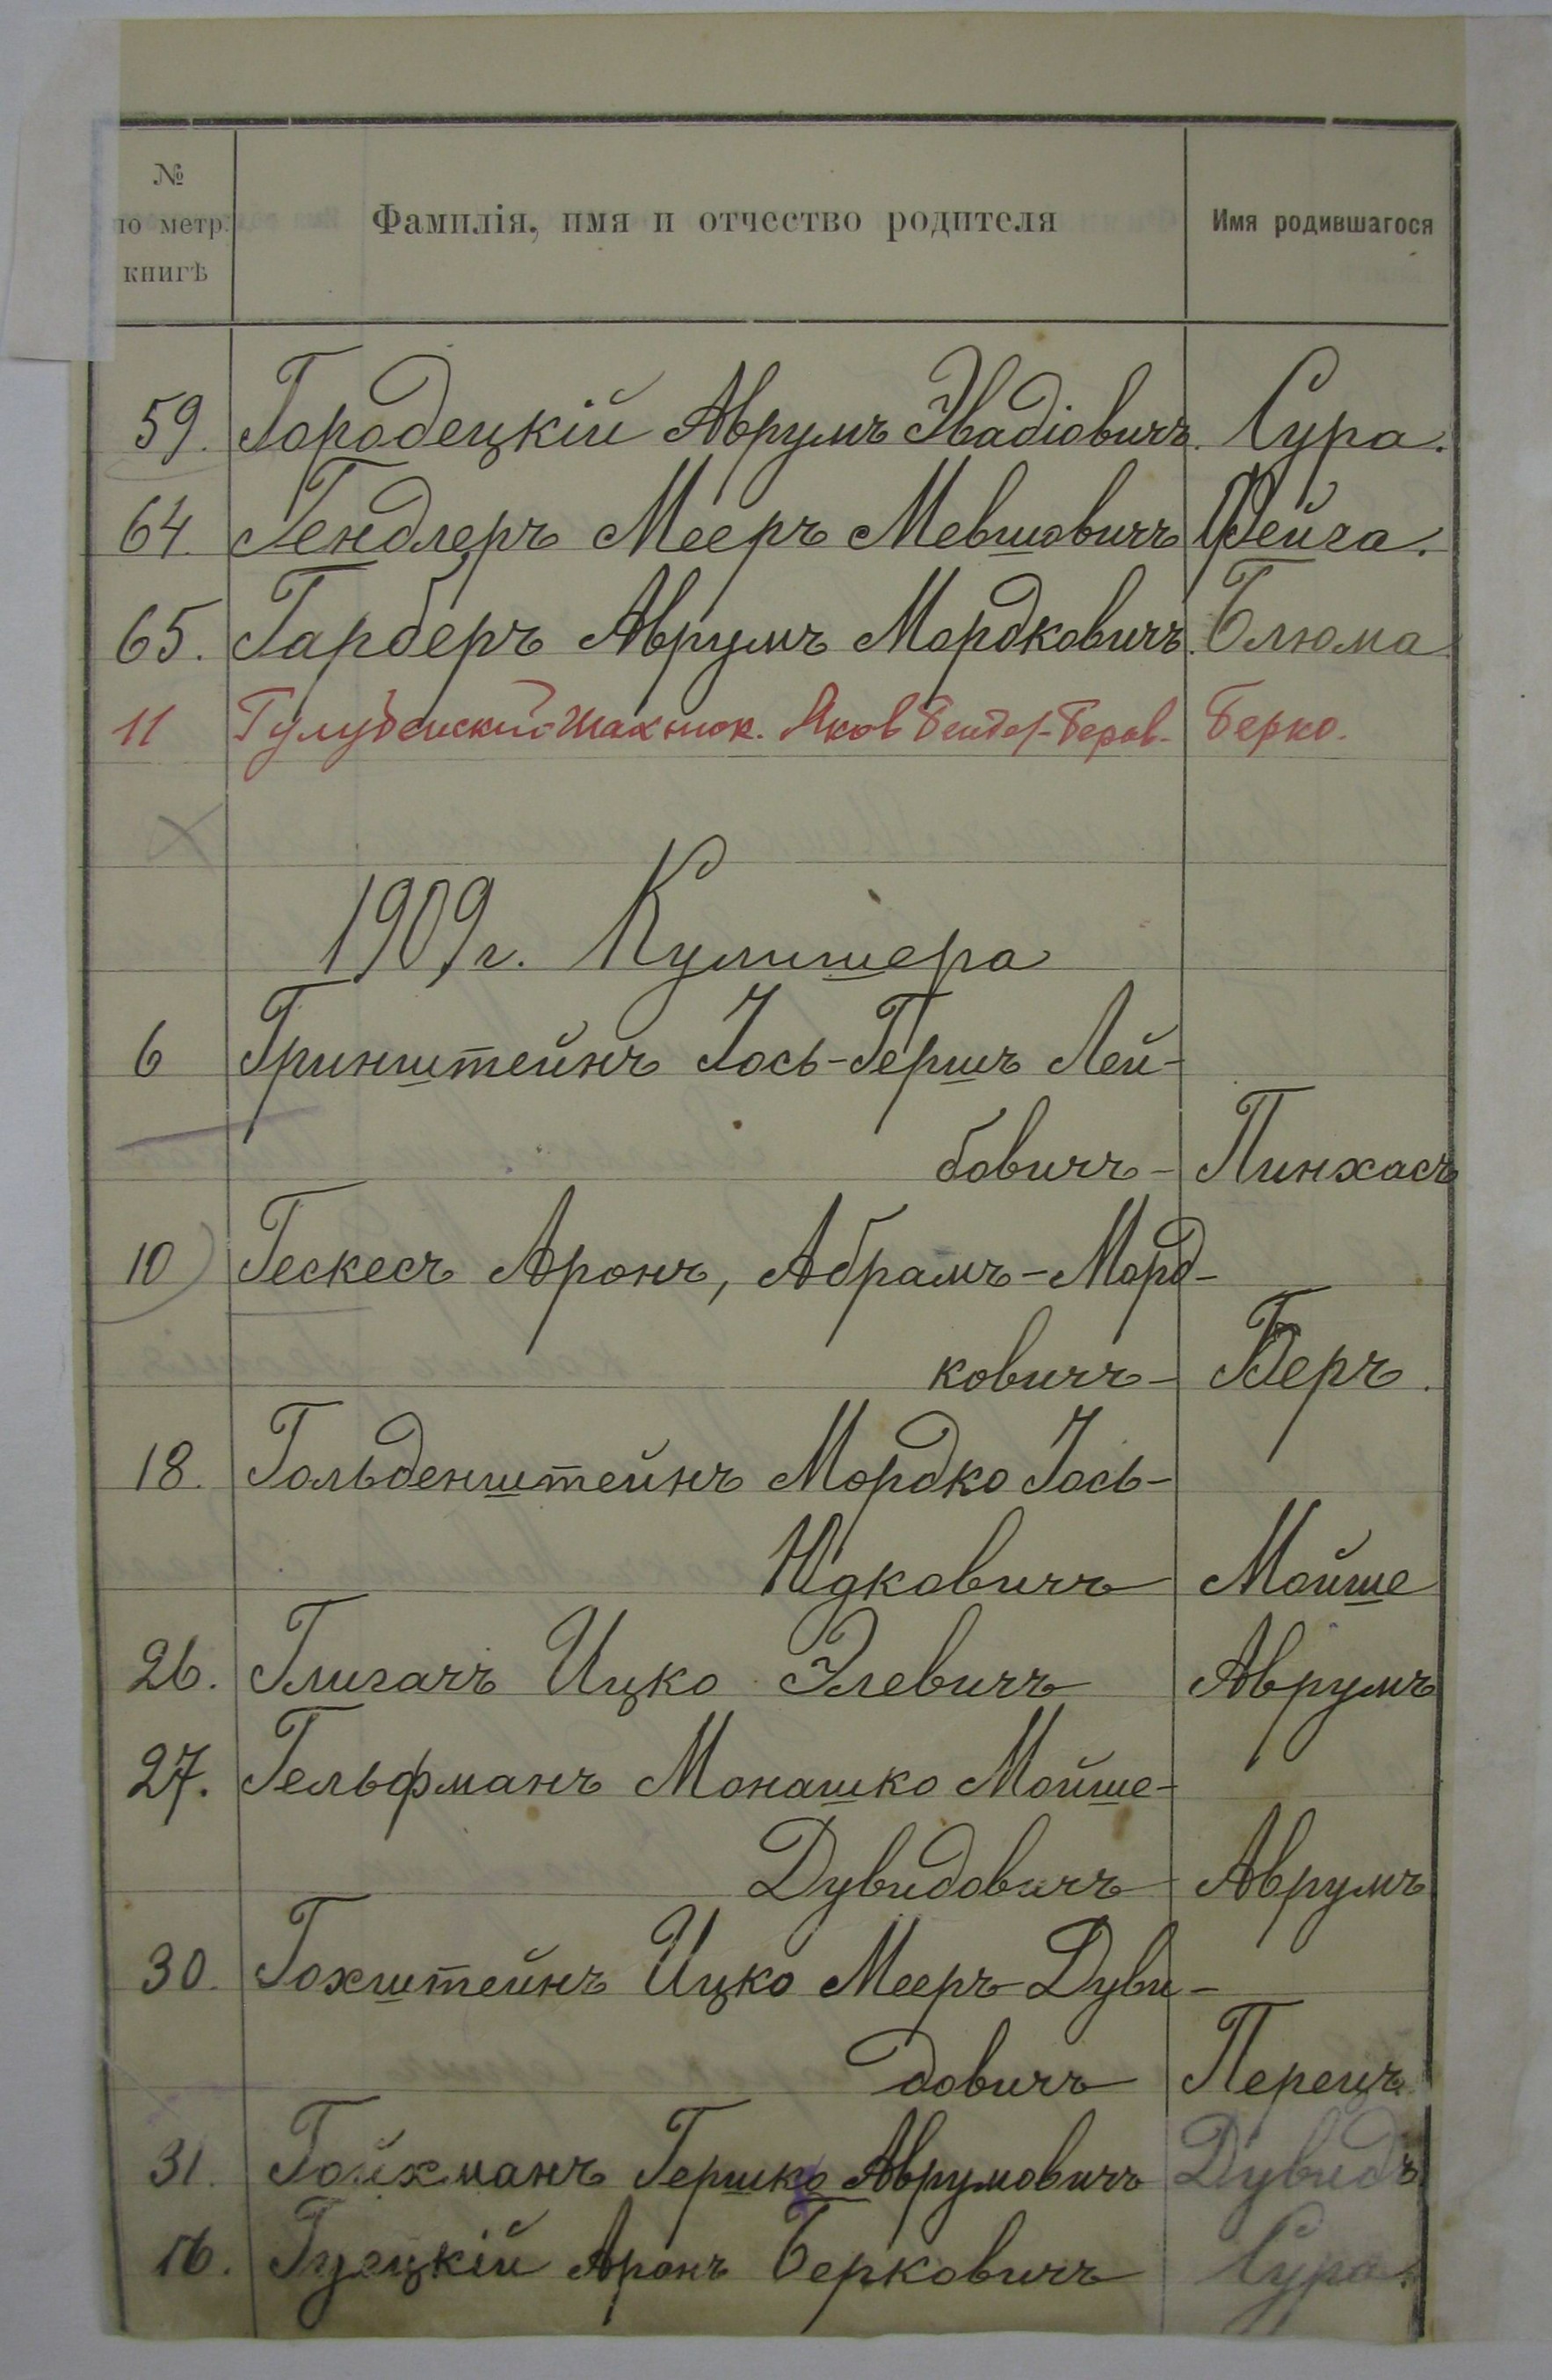 №
по метр.
книгѣ
Фамилія, имя и отчество родителя
Имя родившагося
59. Городецкій Аврумъ Эвадіовичъ. Сура.
64. Гендлеръ Мееръ Мевшовичъ Фейга.
65. Гарберъ Аврумъ Мордковичъ. Блюма
11 Яков Берко.
1909 г. Кулишера
6 Гринштейнъ Іось-Гершъ Лей-
бовичъ- Пинхасъ
10 Гескесъ Аронъ, Абрамъ-Морд-
ковичъ- Беръ.
18. Гольденштейнъ Мордко Іось-
Юдковичъ Мойше
26. Глигачъ Ицко Элевичъ Аврумъ
27. Гельфманъ Монашко Мойше-
Дувидовичъ Аврумъ
30. Гохштейнъ Ицко Мееръ-Дуви-
довичъ Перецъ.
31. Гойхманъ Гершко Аврумовичъ Дувидъ
16. Аронъ Берковичъ Сура.